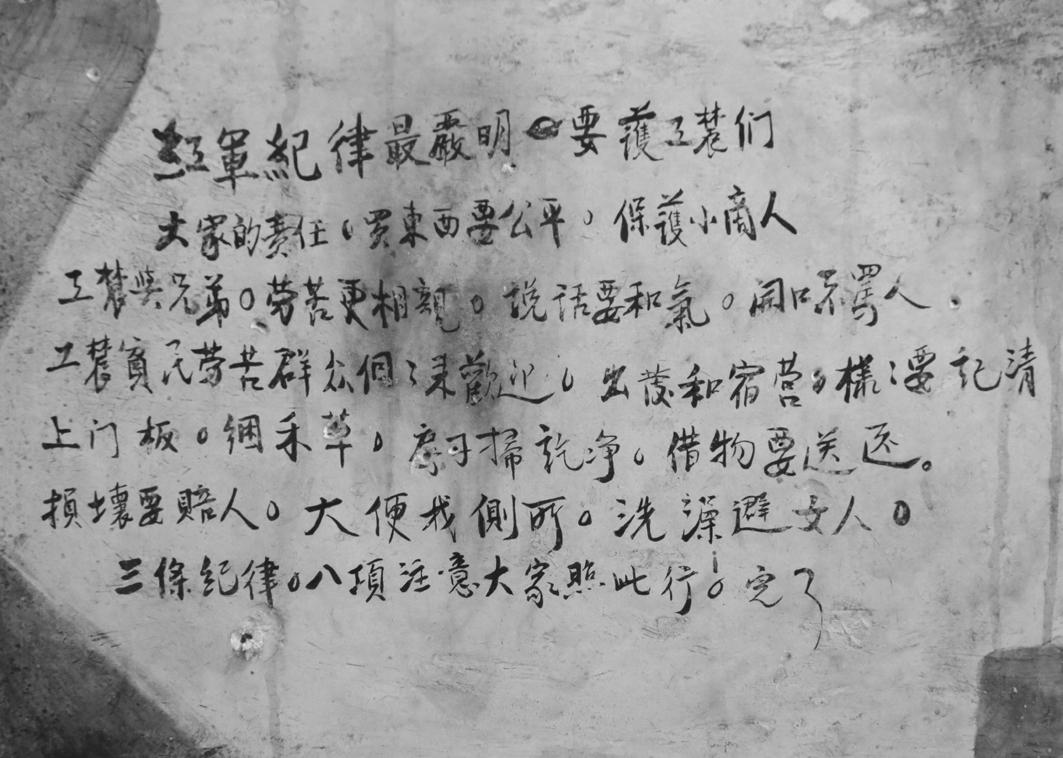 紅軍紀律最嚴明 要護工農们
大家的責任。買東西要公平。保護小商人
工農與兄弟。劳苦更相親。説话要和氣。開口不罵人。
工農貧民劳苦群众個々来歡迎。出發和宿营々樣々要記清
上门板。綑禾草。房子掃乾净。借物要送还。
損壞要賠人。大便找側所。洗澡避女人。
三條紀律。八項注意大家照此行。完了